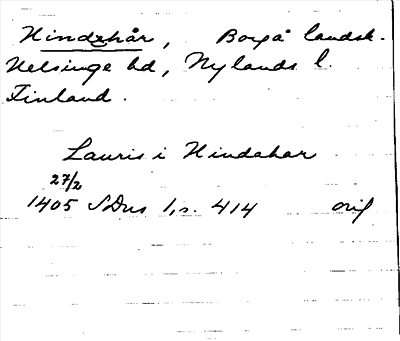 Hindehår, Borgå landsk.
Helsinge hd, Nylands l.
Finland.
Lauris i Hindahar
27/2
1405 SDns 1, s. 414 orig